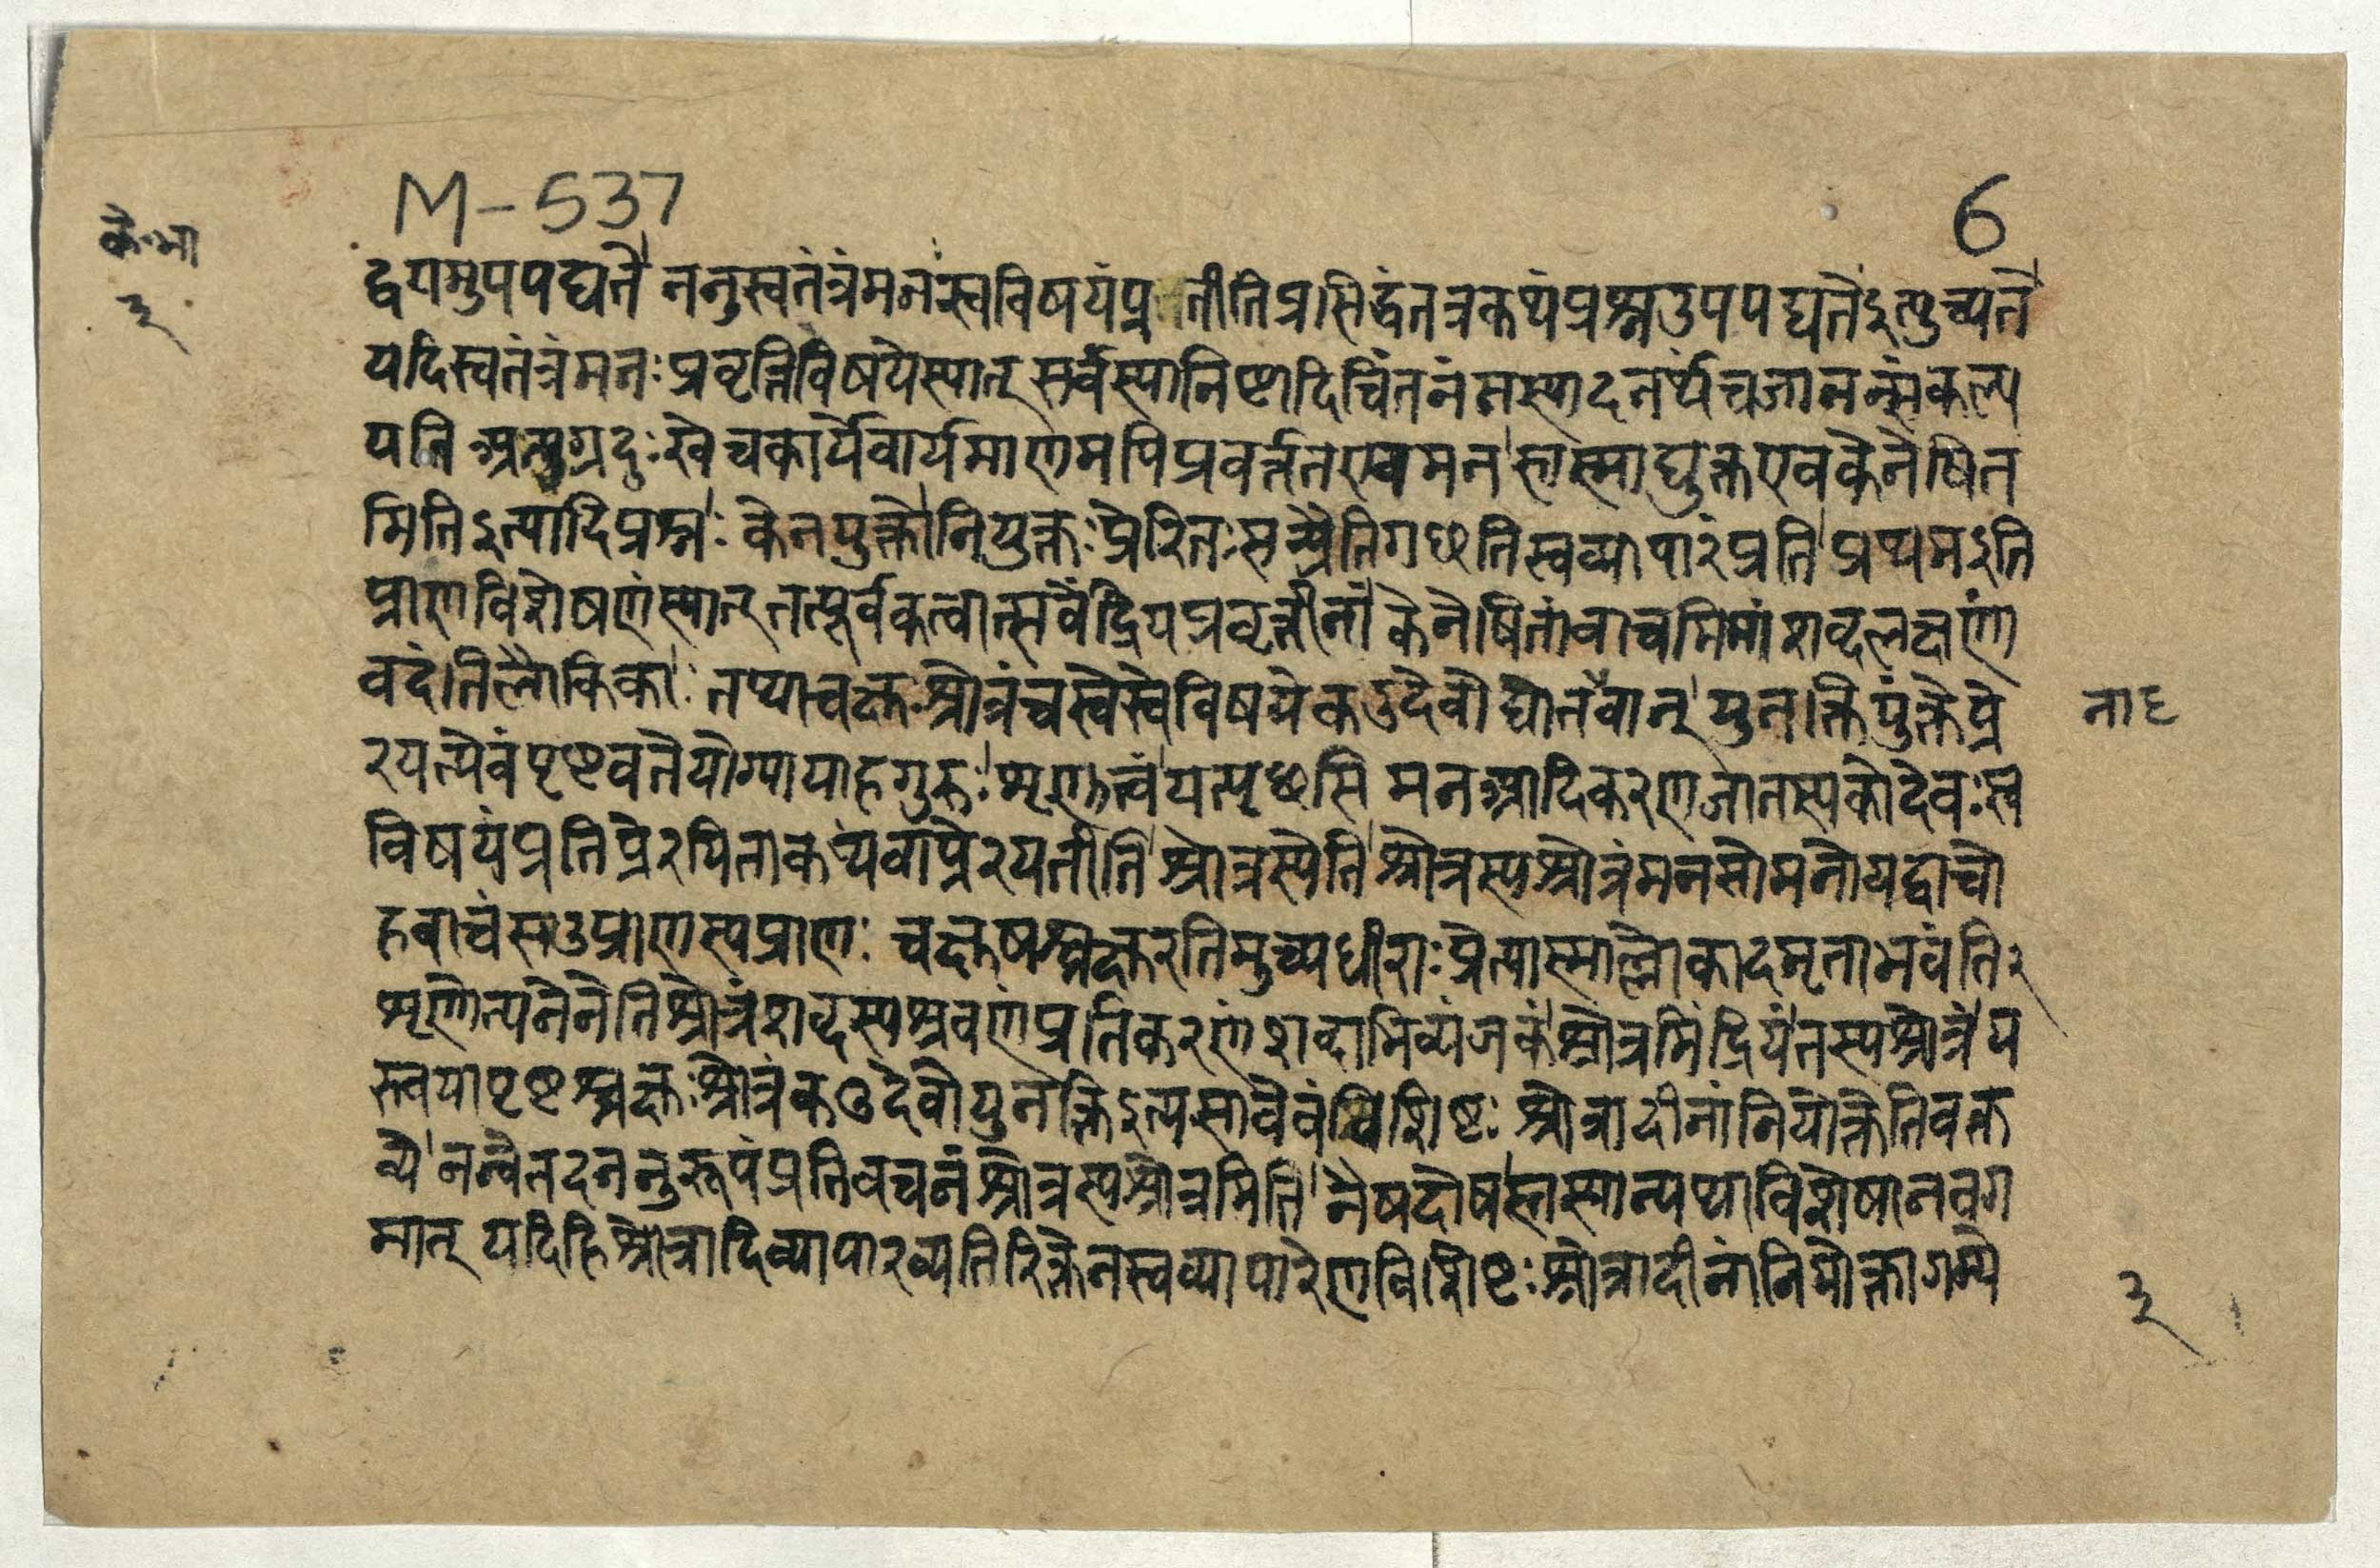 M-537
6
के॰भा
३
द्वयमुपपद्यते ननु स्वतंत्रं मनः स्वविषयं प्र तीति प्रसिद्धं तत्र कथं प्रश्न उपपद्यते इत्युच्यते
यदि स्वतंत्रं मनः प्रवृत्तिविषये स्यात् सर्वस्यानिष्टादिचिंतनं न स्यादनर्थं च जानन्संकल्प
यति अत्युग्रदुःखे च कार्ये वार्यमाणमपि प्रवर्त्तत एव मनस्तस्माद्युक्त एव केनेषित
मिति इत्यादिप्रश्नः केन युक्तो नियुक्तः प्रेरितः सन्प्रैति गछति स्वव्यापारं प्रति प्रथम इति
प्राणविशेषणं स्यात् तत्पूर्वकत्वात्सर्वेंद्रियप्रवृत्तीनां केनेषितां वाचमिमां शब्दलक्षणां
वदंति लौकिकाः तथा चक्षुः श्रोत्रं च स्वे स्वे विषये क उ देवो द्योतवान् युनक्ति युंक्ते प्रे
ना६
रयत्येवं पृष्टवते योग्यायाह गुरुः शृणु त्वं यत्पृछसि मनआदिकरणजातस्य को देवः स्व
विषयं प्रति प्रेरयिता कथं वा प्रेरयतीति श्रोत्रस्येति श्रोत्रस्य श्रोत्रं मनसो मनो यद्वाचो
ह वाचं स उ प्राणस्य प्राणः चक्षुषश्चक्षुरतिमुच्य धीराः प्रेत्यास्माल्लोकादमृता भवंति २
शृणोत्यनेनेति श्रोत्रं शब्दस्य श्रवणं प्रति करणं शब्दाभिव्यंजकं श्रोत्रमिंद्रियं तस्य श्रोत्रं य
स्त्वया पृष्टश्चक्षुः श्रोत्रं क उ देवो युनक्ति इत्यसावेवं विशिष्टः श्रोत्रादीनां नियोक्तेति वक्त
व्ये नन्वेतदननुरूपं प्रतिवचनं श्रोत्रस्य श्रोत्रमिति नैष दोषस्तस्यान्यथा विशेषानवग
मात् यदि हि श्रोत्रादिव्यापारव्यतिरिक्तेन स्वव्यापारेण विशिष्टः श्रोत्रादीनां नियोक्ता गम्ये
३